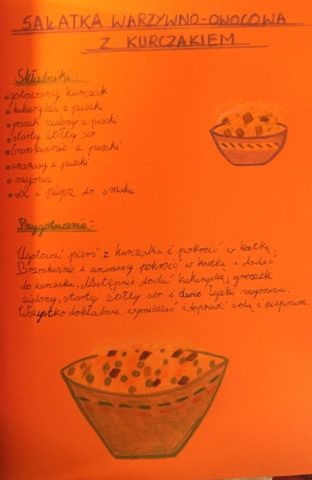 SAŁATKA WARZYWNO-OWOCOWA
Z KURCZAKIEM
Składniki:
•gotowany kurczak
•kukurydza z puszki
•groszek zielony z puszki
•starty żółty ser
•brzoskwinie z puszki
•ananasy z puszki
•majonez
•sól i pieprz do smaku
Przygotowanie:
Ugotować pierś z kurczaka i pokroić w kostkę.
Brzoskwinie i ananasy pokroić w kostkę i dodać
do kurczaka. Następnie dodać kukurydzę, groszek
zielony, starty żółty ser i dwie łyżki majonezu.
Wszystko dokładnie wymieszać i doprawić solą i pieprzem.